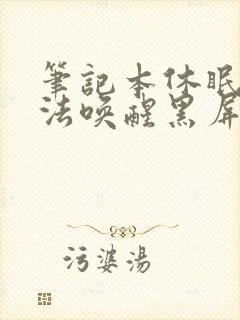 筆記本休眠
法喚醒黑屏
污婆湯